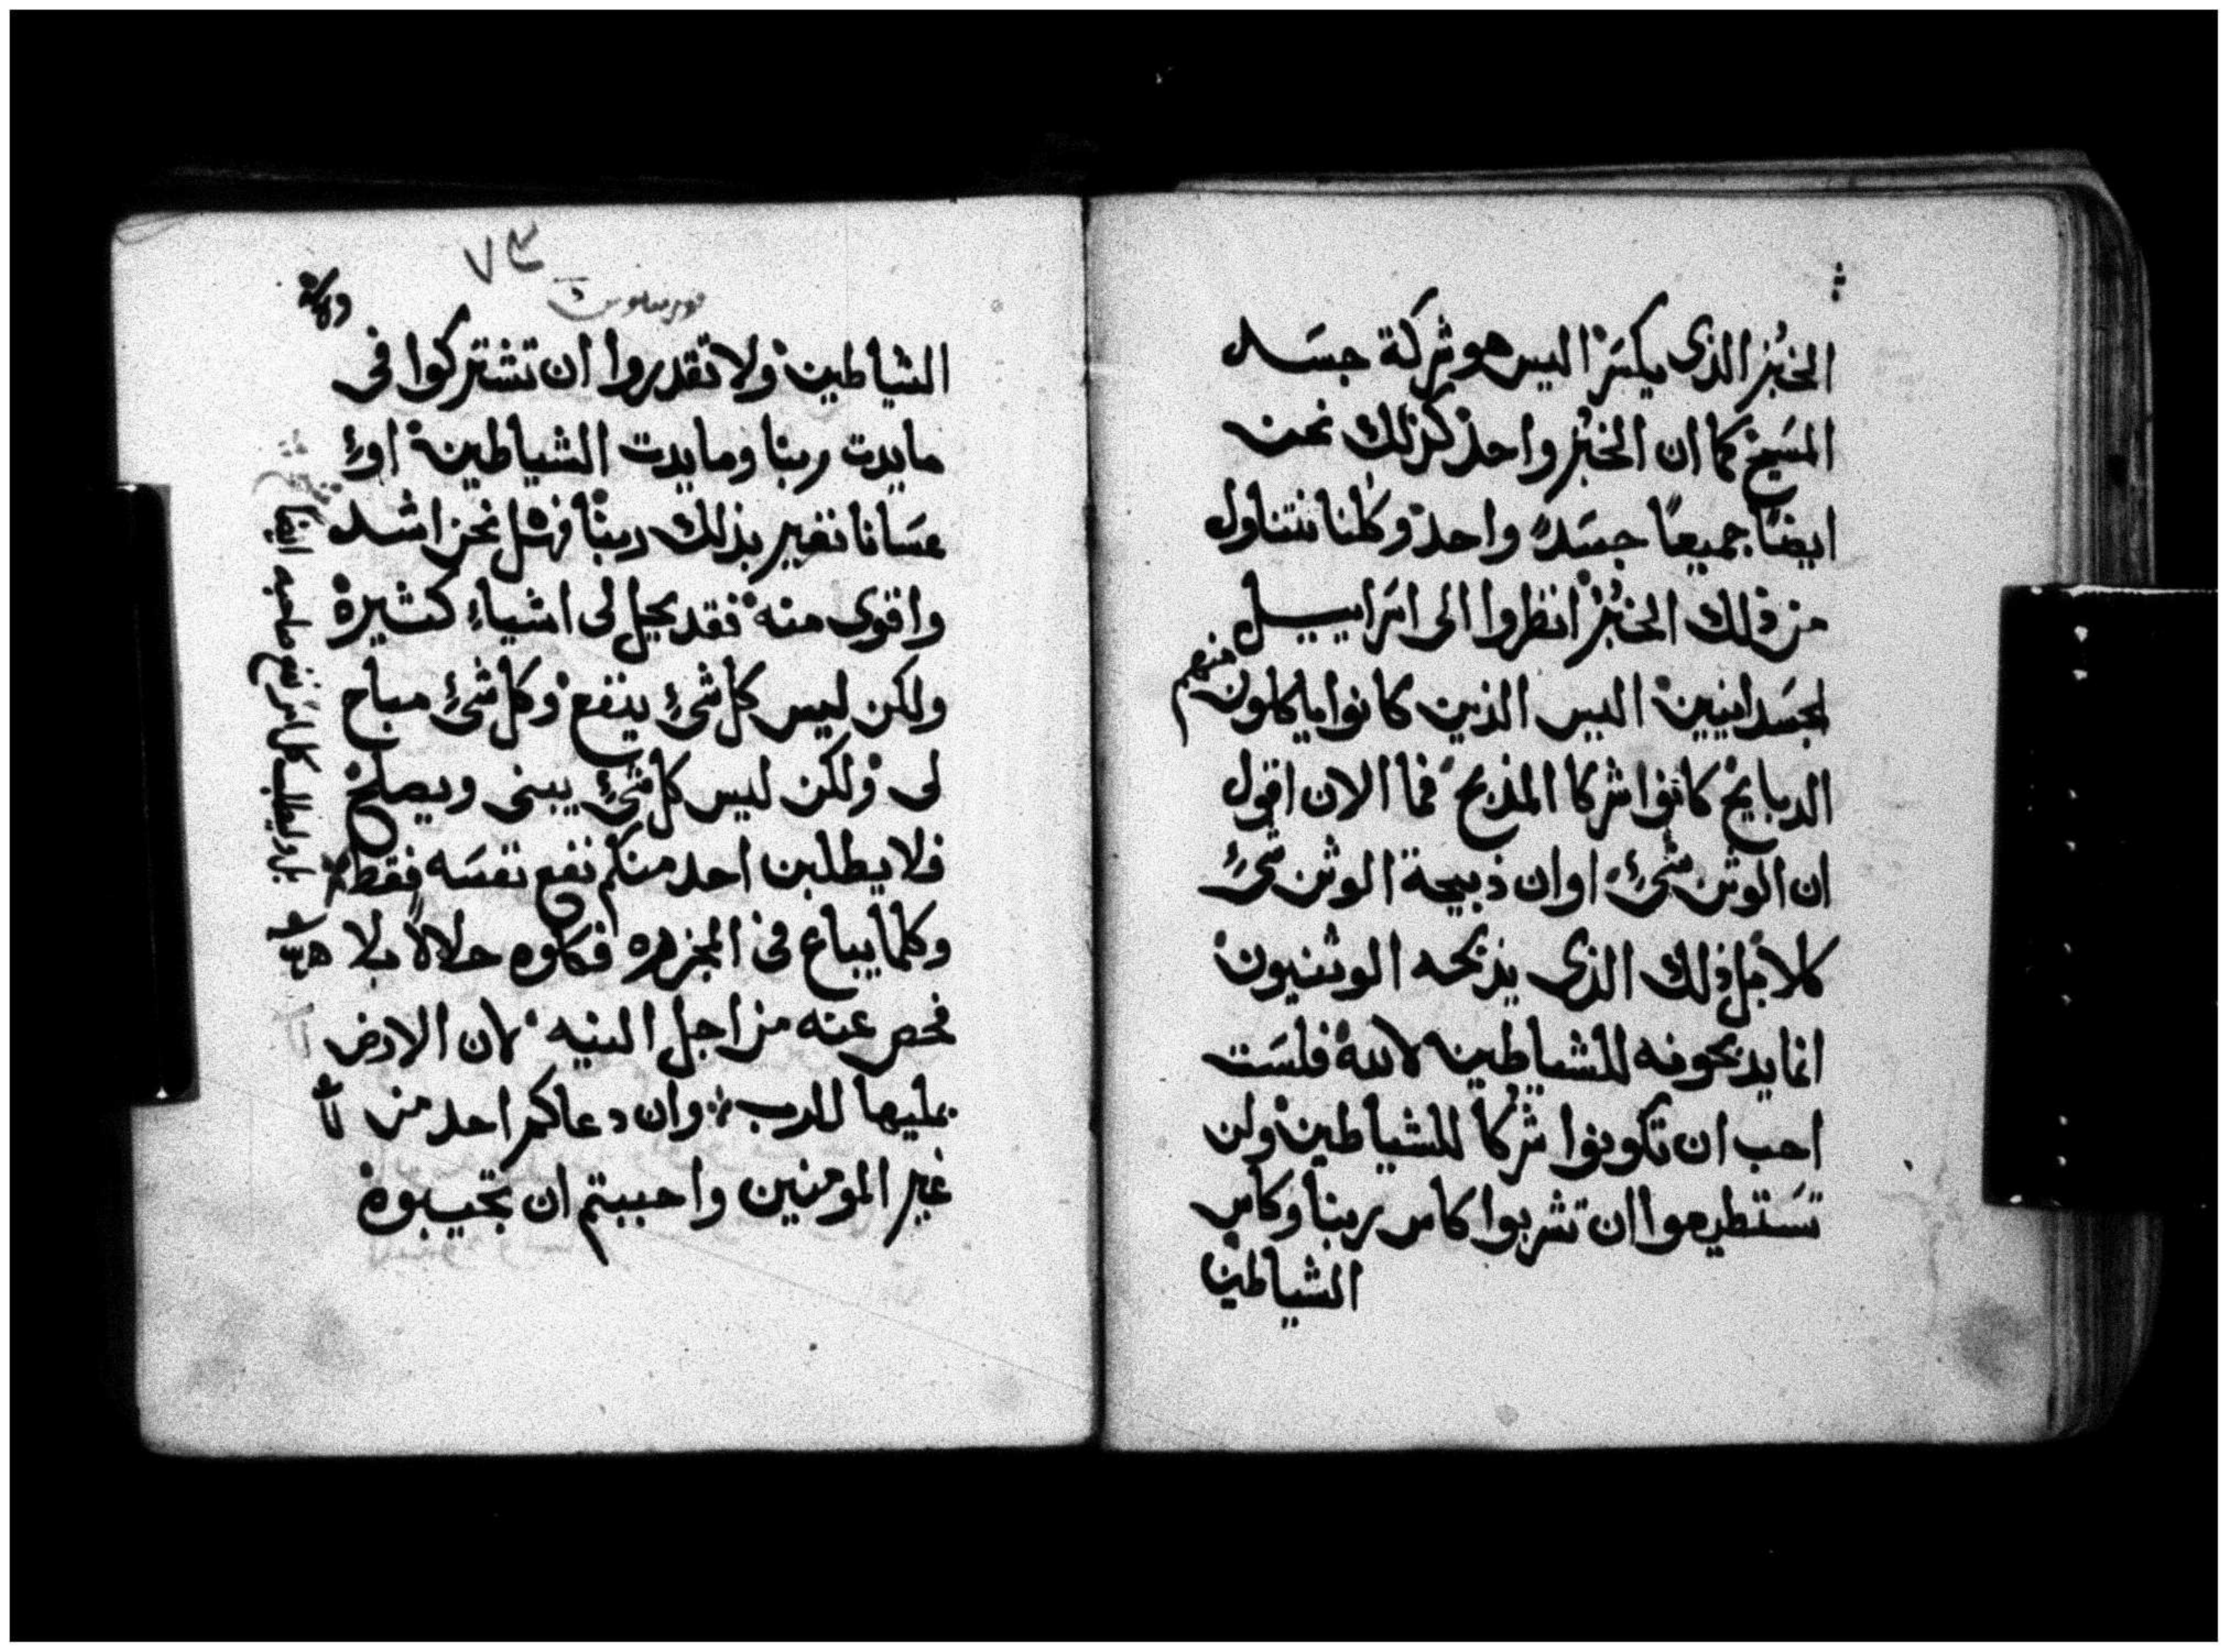 الخبُز الذى يكسَر اليس هو شركة جسَد
المسَيح كما ان الخبُز واحد كذلك نحن
ايضاً جميعاً جسَدً واحد وكلنا نتناول
من ذلك الخبُز انظروا الى اسَراييل
لجسَدانيين اليس الذين كانوا ياكلون منهم
الدبايح كانوا شركا المذبح فما الان اقول
ان الوثن شىء او ان ذبيحة الوثن شىء
كلا بل ذلك الذى يذبحه الوثنيون
انما يذبحونه للشياطين لا لله فلسَت
احب ان تكونوا شركا للشياطين ولن
تسَتطيعوا ان تشربوا كاس ربنا وكاس
الشياطين
٧٣
الشياطين ولا تقدروا ان تشتركوا فى
مايدت ربنا ومايدت الشياطين اوﻟﺊ
عسَانا نغير بذلك ربنا فهل نحن اشد
واقوى منه فقد يحل لى اشياء كثيرة
ولكن ليس كل شىء ينفع وكل شىء مباح
لى ولكن ليس كل شىء يبنى ويصلح
فلا يطلبن احد منكم نفع نفسَه فقط
بل وليطلب كل امر نفع صاحبه ايضاً
وكلما يباع فى المجزره فكلوه حلالاً بلا
فحص عنه من اجل النيه لان الارض
بمليها للرب وان دعاكم احد من
غير المومنين واحببتم ان تجيبوه